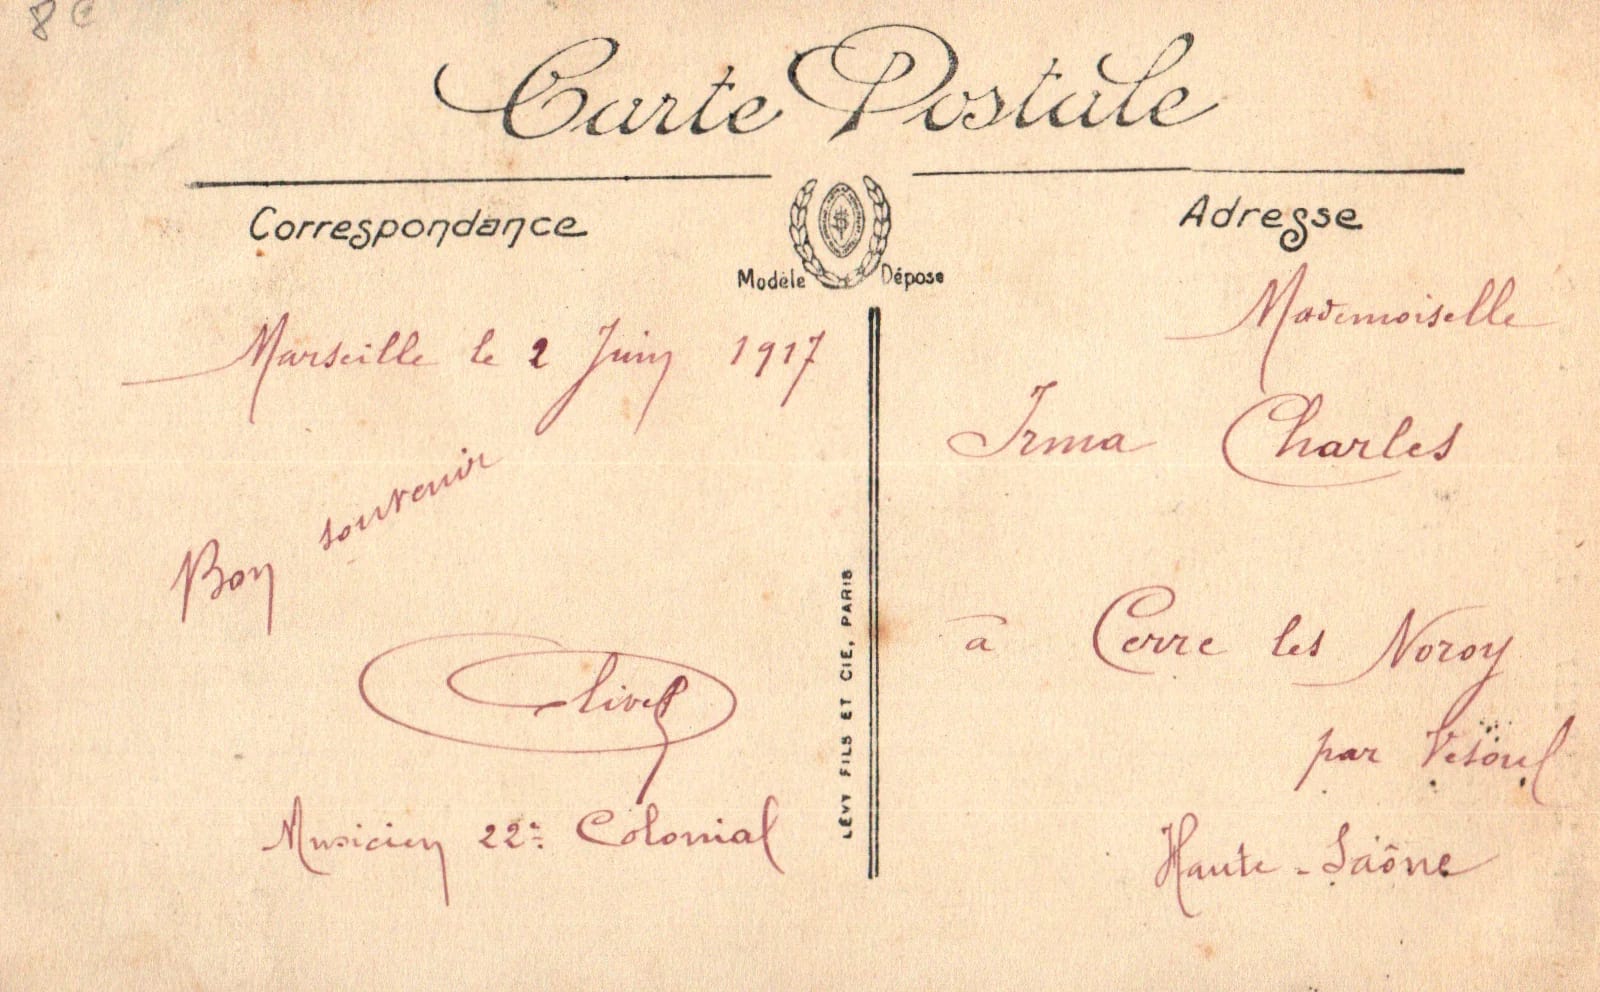 8 €
Carte Postale
Correspondance
Modèle Déposé
Adresse
Marseille le 2 Juin 1917
Bon souvenir
Olivet
Musicien 22e Colonial
LÉVY FILS ET CIE, PARIS
Mademoiselle
Irma Charles
à Cerre les Noroy
par Vesoul
Haute-Saône